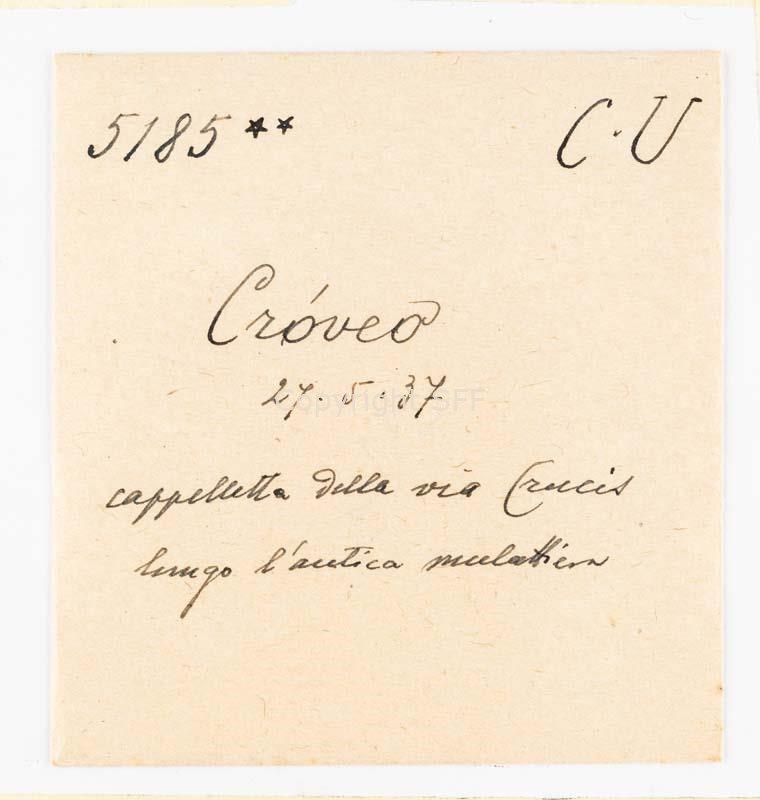 5185 ** C.U
Cróveo
27.5.37
Copyright SFF
cappelletta della via Crucis
lungo l'antica mulattiera